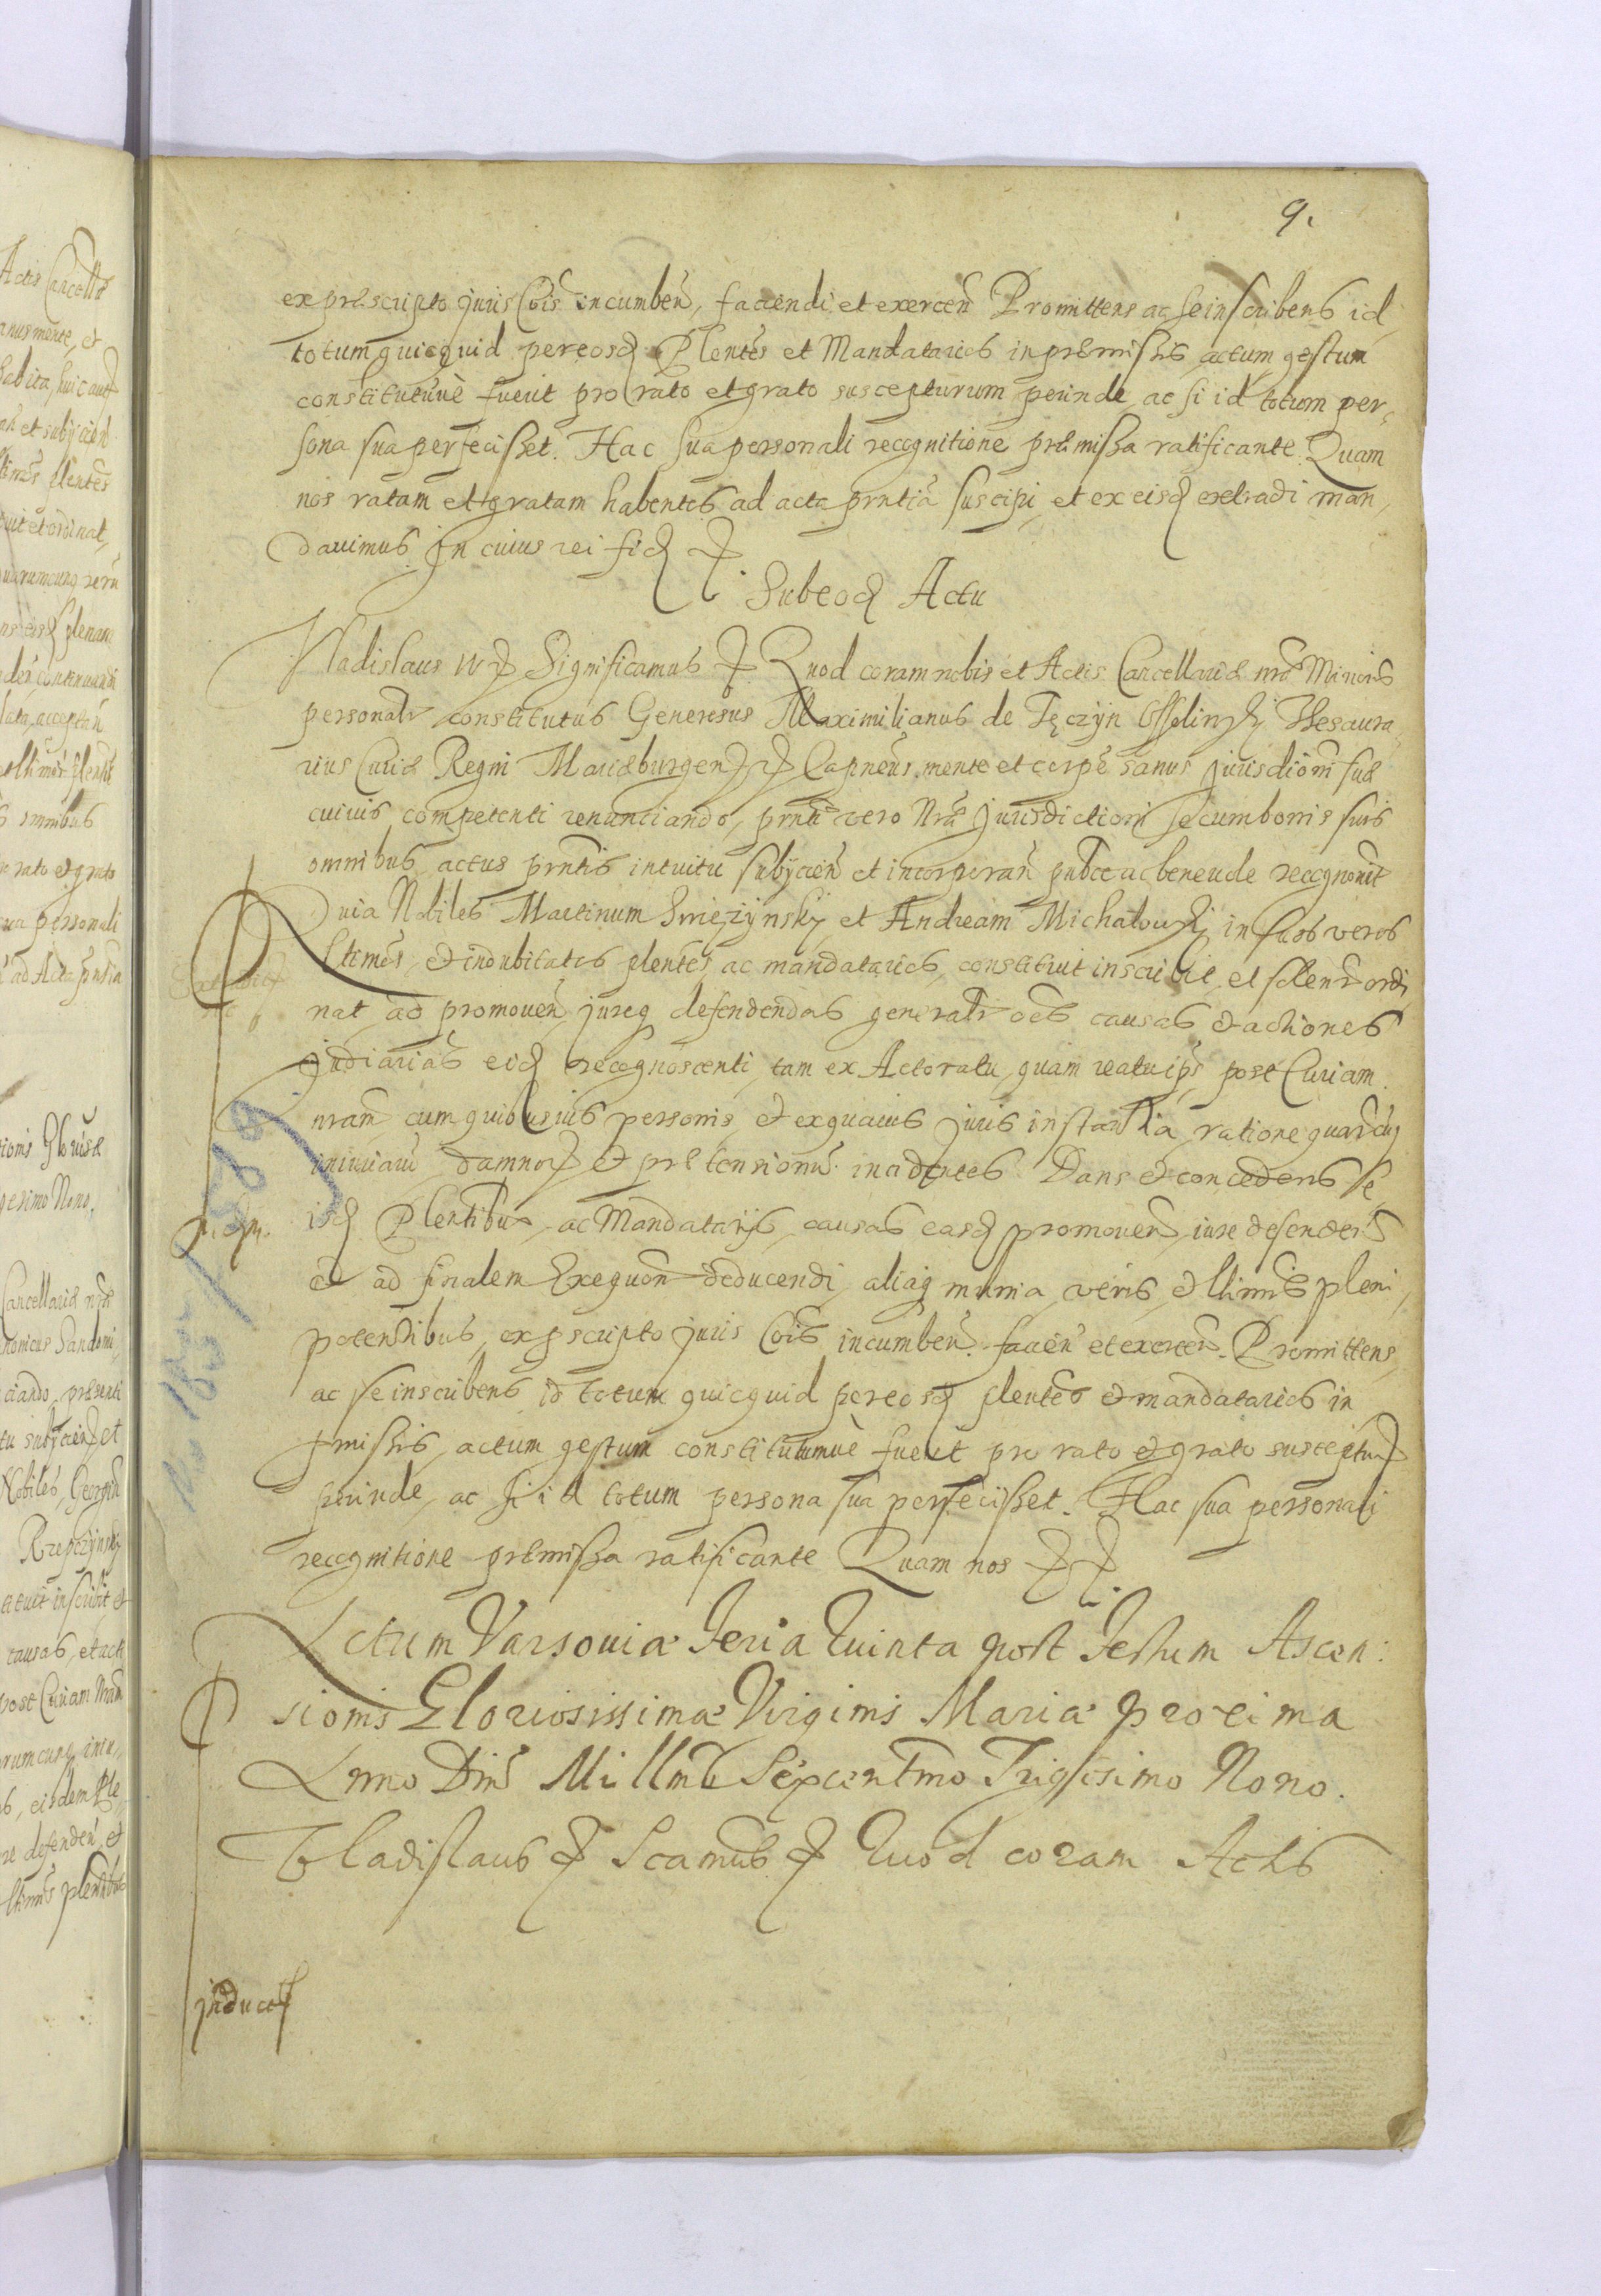 9.
ex præscripto juris Cõis incumbeñ, faciendi et exerceñ Promittens ac se inscribens id
totum quicquid per eosd Plentes et Mandatarios in præmissis actum gestum
constitutumvè fuerit pro rato et grato suscepturum perinde, ac si id totum per,
sona sua perfecisset. Hac sua personali recognitione præmissa ratificante. Quam
nos ratam et gratam habentes ad acta prntia suscipi, et ex eisd extradi man,
davimus. In cuius rei fid
Sub eod Actu
Vladislaus IV Significamus Quod coram nobis et Actis Cancellariæ nræ Minoris
personalr constitutus Generosus Maximilianus de Tęczyn Ossolinsky Thesaura,
rius Curiæ Regni Mariæburgen Capneus, mente et corpe sanus jurisdioni suæ
cuivis competenti renunciando, prnti vero Nræ Jurisdictioni se cum bonis suis
omnibus, actus prntis intuitu subycień et incorporañ pubce ac benevole recognovit
Quia Nobiles Martinum et Andream Michałowsky in suos veros
ltimos, et indubitatos plentes ac mandatarios, constituit inscribit, et solenr ordi,
nat, ad promoveñ jureq defendendas generalr oes causas et actiones
judiarias eid recognoscenti, tam ex Actoratu, quam reatu ips post Curiam
nram, cum quibusvis personis, et ex quavis juris instantia, ratione quarcuq
iniuriaru damnor et prætensionu incidentes. Dans et concedens se,
isd Plentibus, ac Mandatarijs, causas easd promoveñ, iure defendeñ
et ad finalem Exequon deducendi, aliaq munia, veris, et ltimis pleni,
potentibus, ex pscripto juris Cois incumbeñ. facień et exerceñ. Promittens,
ac se inscribens id totum quicquid per eosd plentes et mandatarios in
pmissis, actum gestum constitutumvè fuerit pro rato et grato susceptur
perinde, ac si id totum persona sua perfecisset. Hac sua personali
recognitione præmissa ratificante Quam nos
Actum Varsoviæ Feria Quinta post Festum Ascen:
sionis Gloriosissimæ Virginis Mariæ proxima
Anno Dni Millmo Sexcentmo Trigesimo Nono.
Vladislaus Scamus Quod coram Actis
inducts